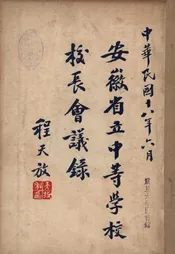 中華民國十八年六月
安徽省立中等學校
校長會議錄
程天放